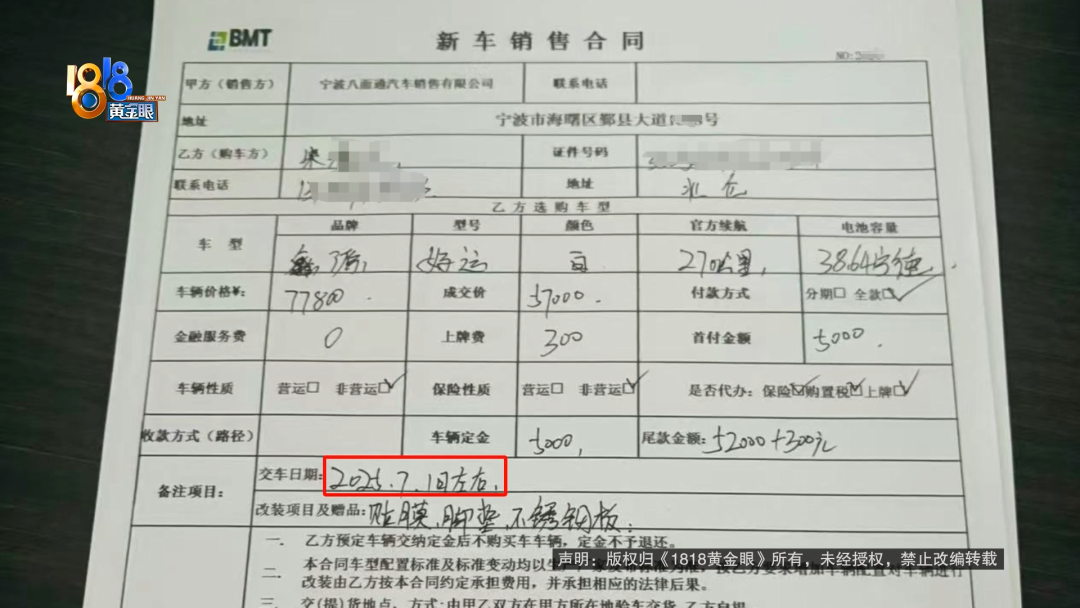 BMT
新车销售合同
NO:2
1818
HUANG JIN YAN
黄金眼
甲方（销售方） 宁波八面通汽车销售有限公司 联系电话
地址 宁波市海曙区鄞县大道 号
乙方（购车方） 证件号码
联系电话 地址
乙方选购车型
车 型 品牌 型号 颜色 官方续航 电池容量
好运 白 270公里, 38.64
车辆价格¥: 77800. 成交价 57000. 付款方式 分期□ 全款☑
金融服务费 0 上牌费 300 首付金额 5000.
车辆性质 营运□ 非营运☑ 保险性质 营运□ 非营运☑ 是否代办: 保险☑购置税☑上牌☑
收款方式（路径） 车辆定金 5000, 尾款金额: 52000+300元
备注项目: 交车日期: 2025.7.1日左右,
改装项目及赠品: 贴膜,脚垫,不锈钢板.
一. 乙方预定车辆交纳定金后不购买车车辆，定金不予退还。
声明：版权归《1818黄金眼》所有，未经授权，禁止改编转载
二. 本合同车型配置标准及标准变动均以生
改装由乙方按本合同约定承担费用，并承担相应的法律后果。
三. 交(提)货地点、方式:由甲乙双方在甲方所在地验车交货,乙方自提